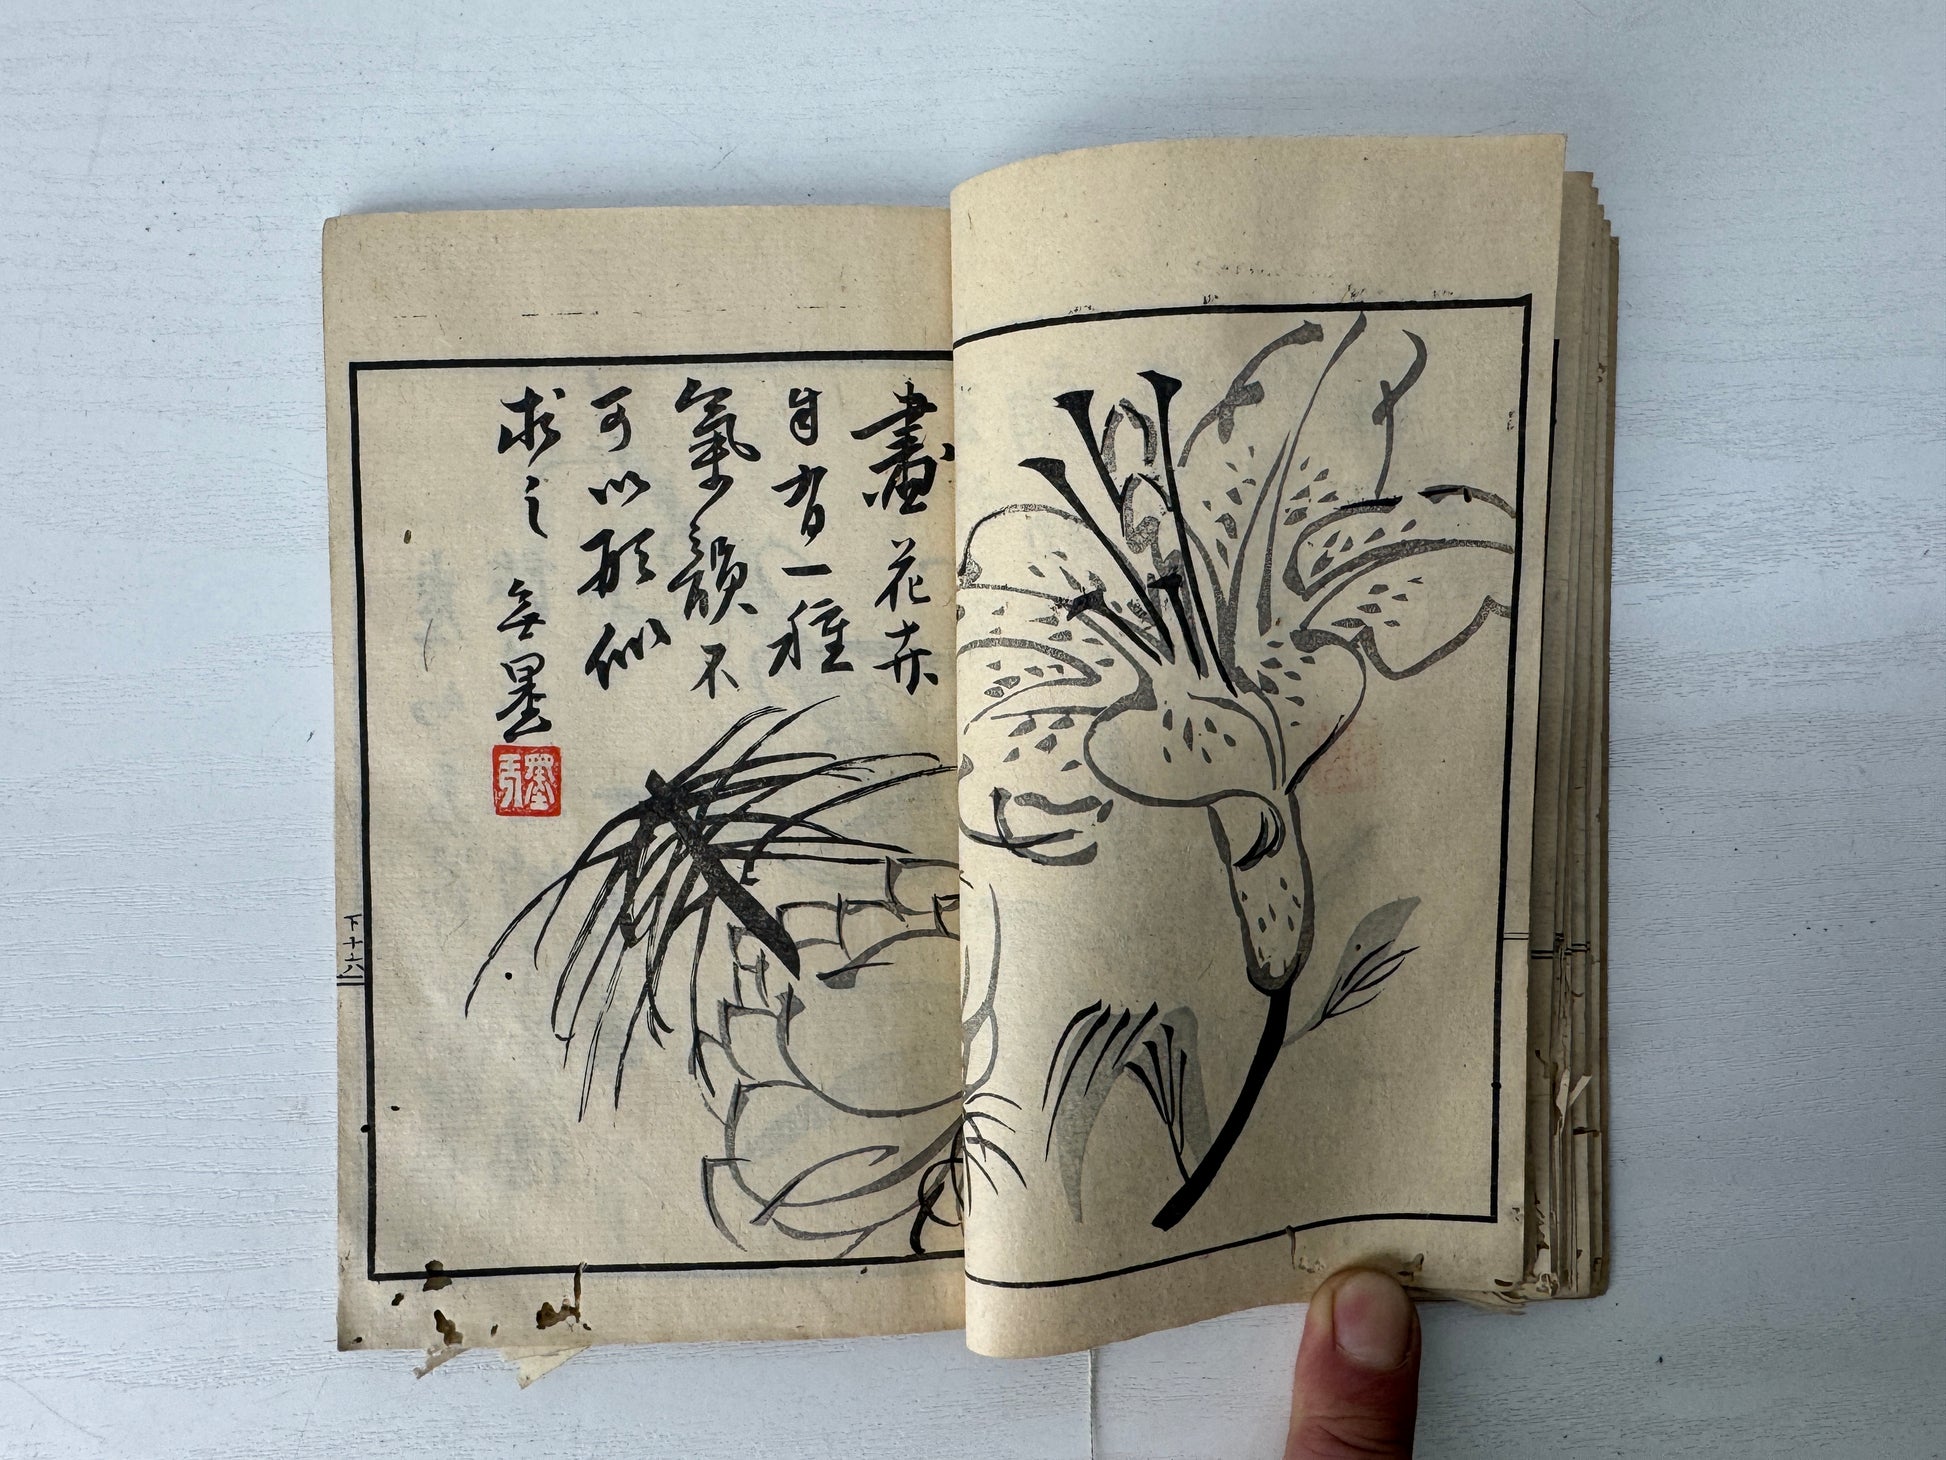 畫花卉
自有一種
氣韻不
可以形似
求之
墨